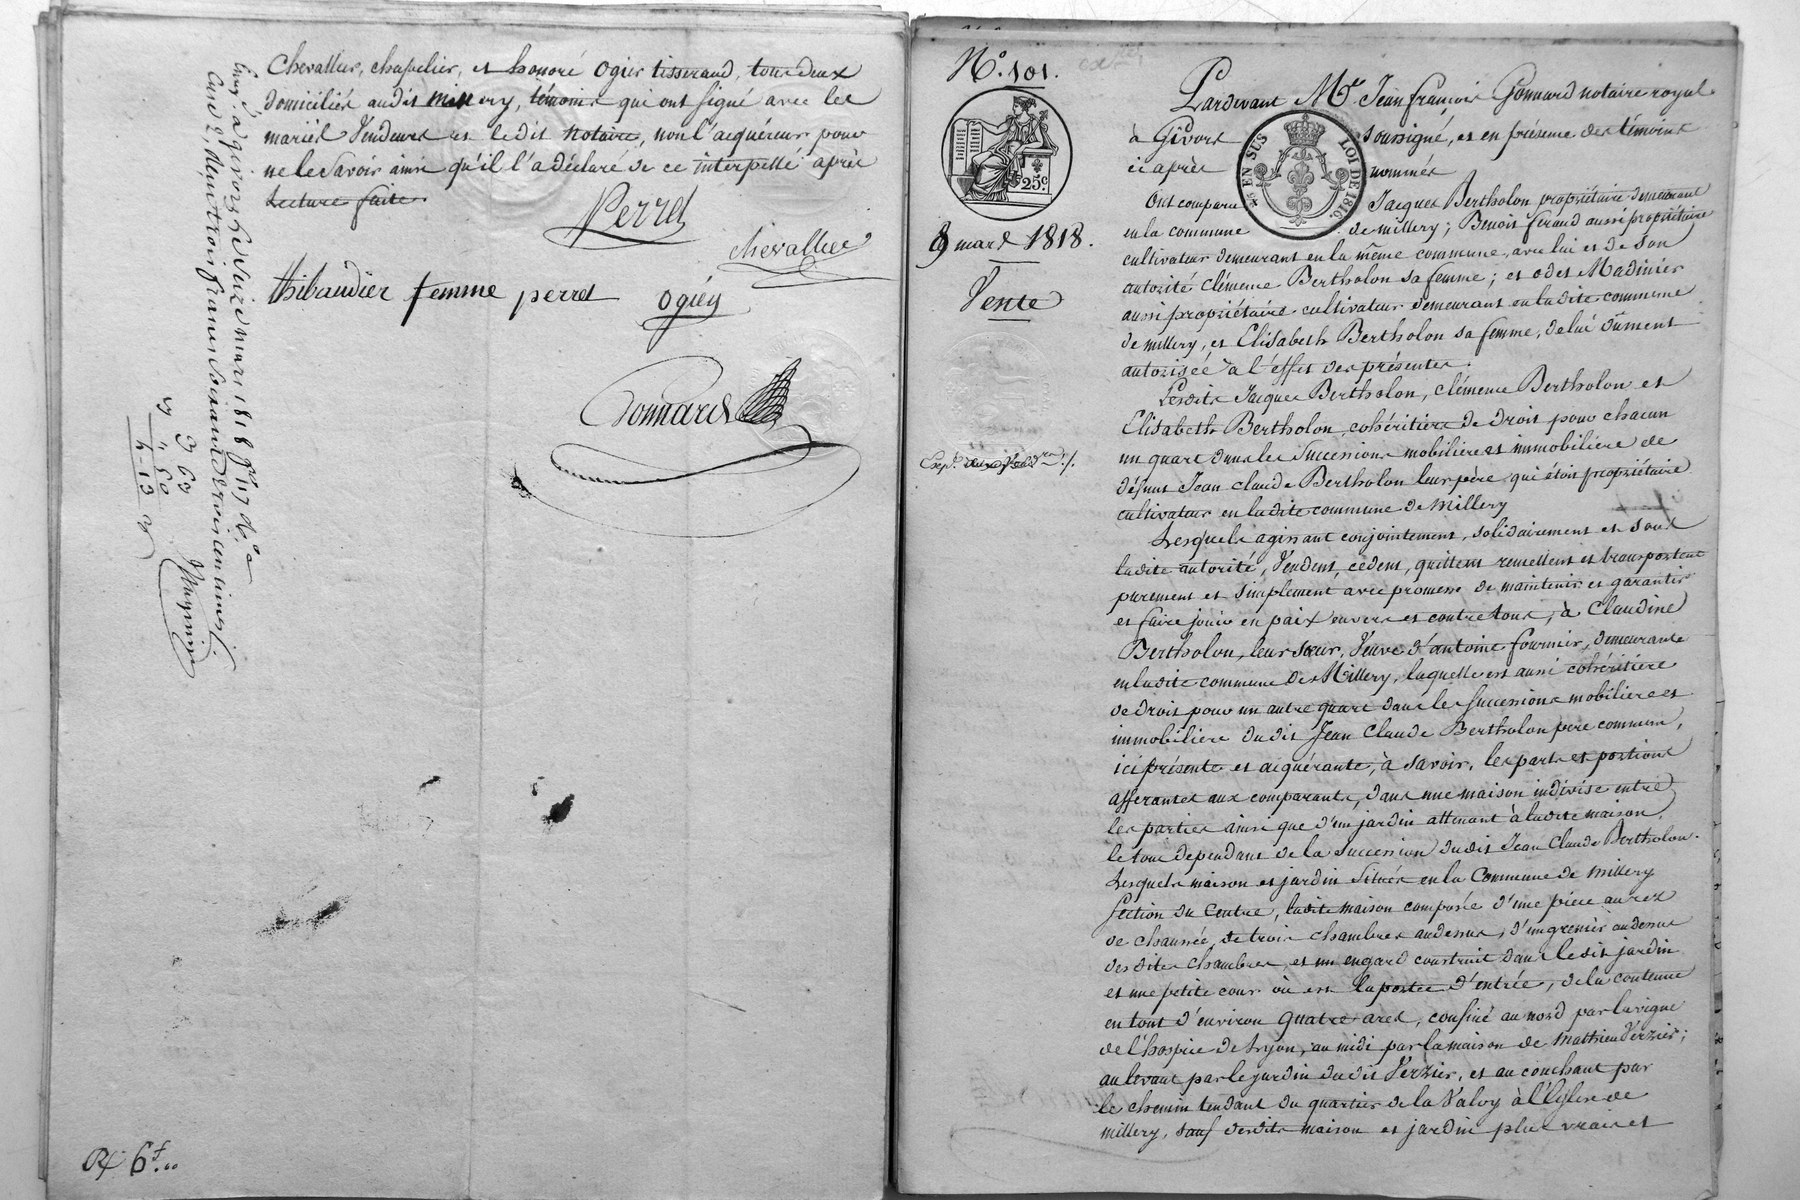 Chevallier, chapelier, et honoré Ogier tisserand, tous deux
domiciliés audit Millery, témoins qui ont signé avec les
mariés Vendeurs et ledit notaire, non l'acquéreur pour
ne le savoir ainsi qu'il l'a déclaré de ce interpellé après
Lecture faite.
Perret
Chevallier
thibaudier femme perret
ogier
Gonnard
Enrg. à givors le seize mars 1818 f° 117 V°
Case 2, Reçu trois francs soixante trois centimes
3 63
" 60
4-13
R/ 6f.00
N°. 101.
25c
EN SUS
LOI DE 1816.
9 mars 1818.
Vente
Pardevant Me. Jean françois Gonnard notaire royal
à Givors soussigné, et en présence des témoins
ci après nommés
Ont comparu Jacques Bertholon propriétaire demeurant
en la commune de millery; Benoit feraud aussi propriétaire
cultivateur demeurant en la même commune, avec lui et de son
autorité clémence Bertholon sa femme; et odet Madinier
aussi propriétaire cultivateur demeurant en ladite commune
de millery, et Elisabeth Bertholon sa femme, de lui dûment
autorisée à l'effet des présentes.
Lesdits Jacques Bertholon, clémence Bertholon et
Elisabeth Bertholon, cohéritiers de droit pour chacun
un quart dans les successions mobilière et immobilière de
défunt Jean claude Bertholon leur père qui étoit propriétaire
cultivateur en ladite commune de Millery
Lesquels agissant conjointement, solidairement et sous
ladite autorité, Vendent, cèdent, quittent remettent et transportent
purement et simplement avec promesse de maintenir et garantir
et faire jouir en paix envers et contre tous, à Claudine
Bertholon, leur sœur, Veuve d'antoine fournier, demeurante
en ladite commune de Millery, laquelle est aussi cohéritière
de droit pour un autre quart dans les successions mobilière et
immobilière dudit Jean Claude Bertholon père commun,
ici présente et acquérante, à savoir, les parts et portions
afférantes aux comparants, dans une maison indivise entre
les parties ainsi que d'un jardin attenant à ladite maison,
le tout dépendant de la succession dudit Jean Claude Bertholon.
Lesquels maison et jardin situés en la Commune de Millery
section du Centre, ladite maison composée d'une pièce au rez
de chaussée, de trois chambres audessus, d'un grenier audessus
desdites chambres, et un engard construit dans ledit jardin
et une petite cour où est la portee d'entrée, de la contenue
en tout d'environ quatre ares, confiné au nord par la vigne
de l'hospice de Lyon, au midi par la maison de Mathieu Verzier;
au levant par le jardin dudit Verzier, et au couchant par
le chemin tendant du quartier de la Valoy à l'Eglise de
millery, sauf desdits maison et jardin plus vrais et